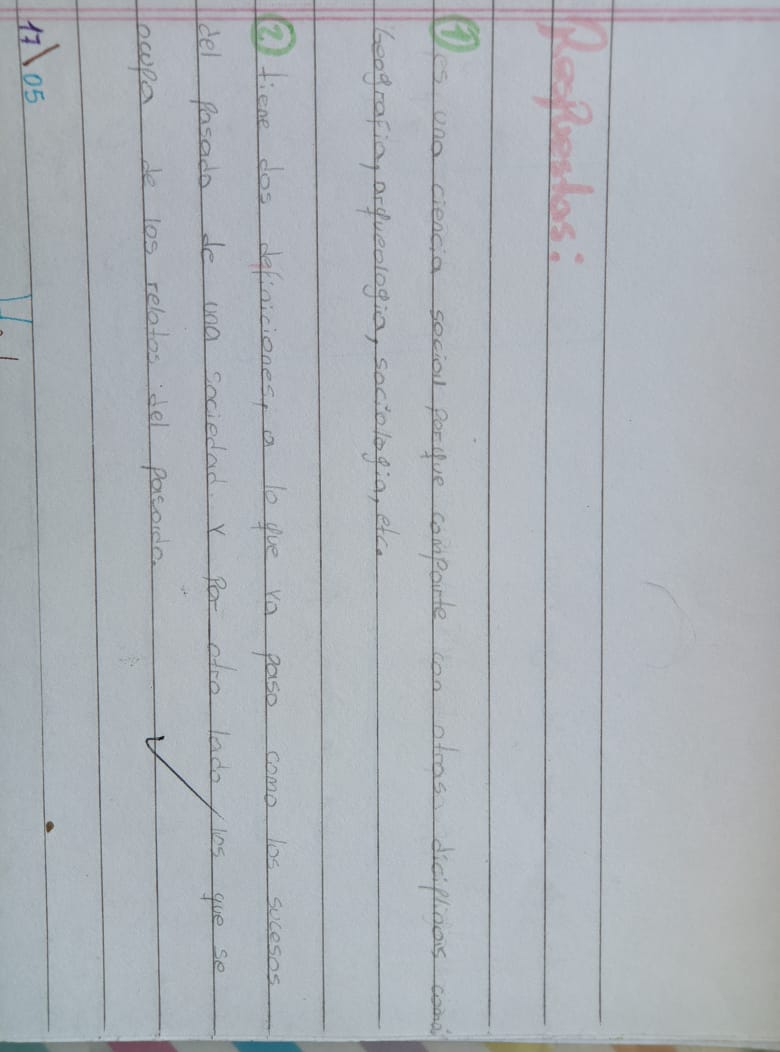 Respuestas:
① es una ciencia social porque comparte con otras diciplinas como
Geografia, arqueologia, sociologia, etc.
② tiene dos definiciones, a lo que ya paso como los sucesos
del pasado de una sociedad. Y Por otro lado, los que se
ocupa de los relatos del pasado.
17\05